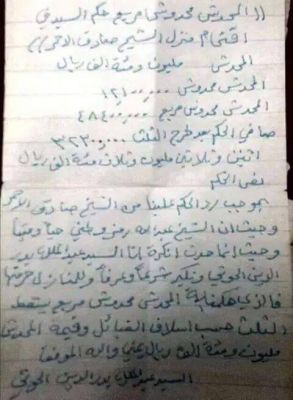 (( المحدش محدوش مربع حكم السيد في
اقتحام منزل الشيخ صادق الاحمر ))
المحدش مليون ومئة الف ريال
المحدش محدوش ١٢١٠٠٠٠٠
المحدش محدوش مربع ٤٨٤٠٠٠٠٠
صافي الحكم بعد طرح الثلث ٣٢٣٠٠٠٠٠
اثنين وثلاثين مليون وثلاث مئة الف ريال
نص الحكم
بموجب رد الحكم علينا من الشيخ صادق الاحمر
وحيث ان الشيخ عبدالله رمز وطني حياً وميتاً
وحيث انما حدث انكره انا السيد عبدالملك بدر
الدين الحوثي شرعاً وعرفاً وللمنازل حرمتها
المحدش محدوش مربع يسقط
الثلث حسب اسلاف القبائل وقيمة المحدش
مليون ومئة الف ريال يمني والله الموفق
السيد عبدالملك بدرالدين الحوثي